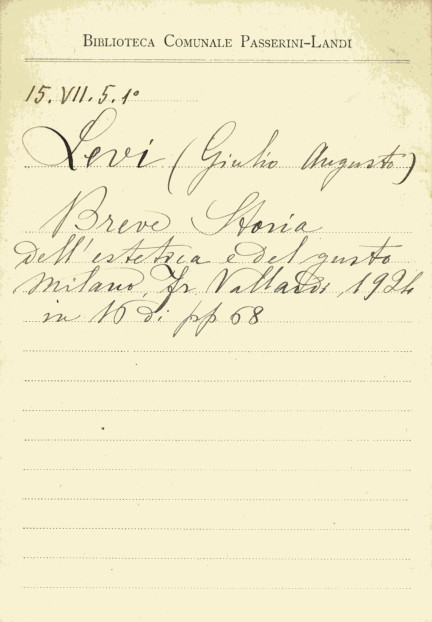 BIBLIOTECA COMUNALE PASSERINI-LANDI
15.VII.5.1°
Levi (Giulio Augusto)
Breve Storia
dell'estetica e del gusto
Milano, Fr Vallardi, 1924
in 16 di pp 68